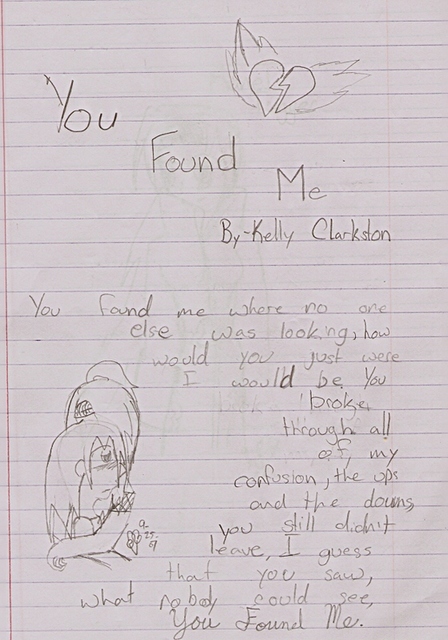 You
Found
Me
By-Kelly Clarkston
You found me where no one
else was looking, how
would you just were
I would be. You
broke
through all
of, my
confusion, the ups
and the downs,
you still didn't
leave, I guess
that you saw,
what nobody could see,
You Found Me.
9.
25.